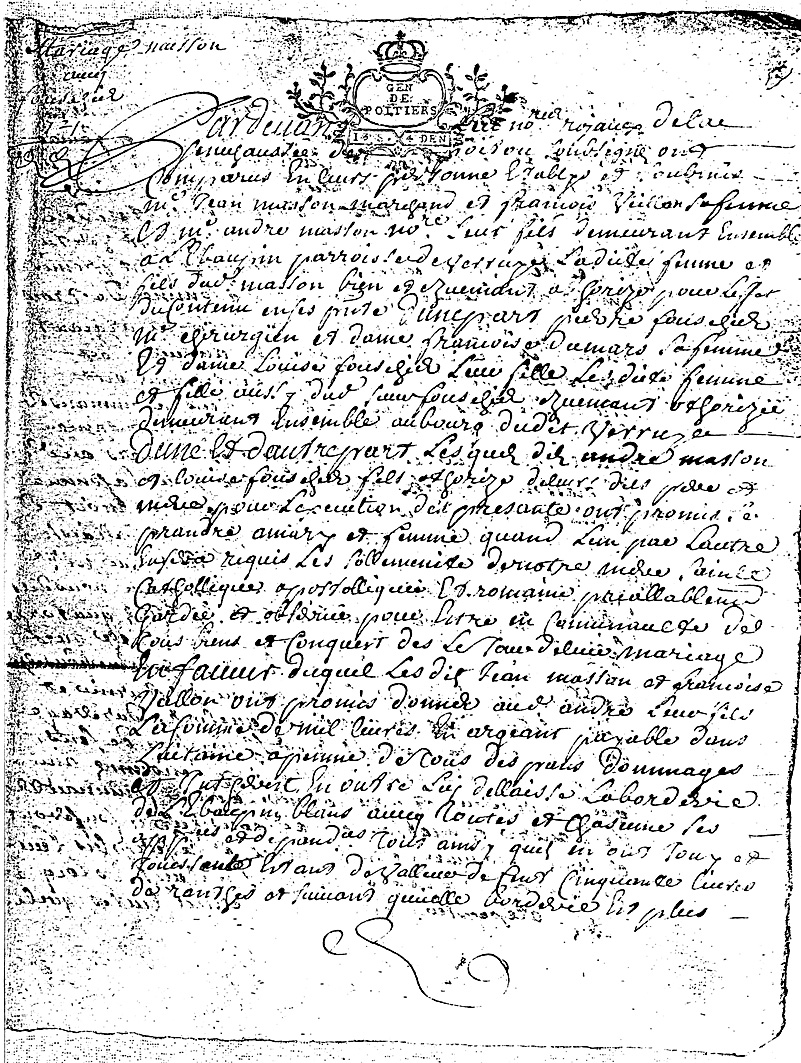 Mariage masson
avecq
fouscher
GEN
DE
POITIERS
DEN
Pardevant les no.res royaux de la
senechaussée de soubsigné ont
Comparus En leurs personne Etablys et soubmis
m.e Jean masson marchand et françoise Vallon sa femme
Et m.e andre masson no.re Leur fils demeurant Ensemble
a L'Ebaupin parroisse de Verruye Ladicte femme et
fils dud. masson bien et duemant othorizé pour L'effet
du contenu en ses pnte D'une part pierre fouscher
m.e chirurgien et dame françoise damars sa femme
Et dame Louise fouscher Leur fille Lesdicte femme
et fille aussy dud sieur fouscher duemant othorizée
demeurant Ensemble au bourg dudit Verruye
D'une Et d'autre part Lesquel dit andre masson
et Louise fouscher fils othorizé de leurs dits père et
mère pour L'execution des presante ont promis se
prandre a mary et femme quand L'un par L'autre
sera requis Les sollemnité de nostre mère Sainte
Catholligue apostolligue Et romaine preallablement
Gardée et observée pour Entre en Communauté de
tous biens et Conquest des Le Jour de leur mariage
En faveur duquel Les dit Jean masson et françoise
Vallon ont promis donner aud andre Leur fils
La somme de mil livres En argeant payable dans
a penne de tous despans dommages
et Interest En outre Luy dellaisse La borderie
de L'Ebaupin blans avecq toutes et Chascune ses
et dependas tout ainsy quil en ont Jouy et
Jouissants Estant de Valleur de Cent Cinquante livres
de ranthes et suivant qu'elle borderie Est plus